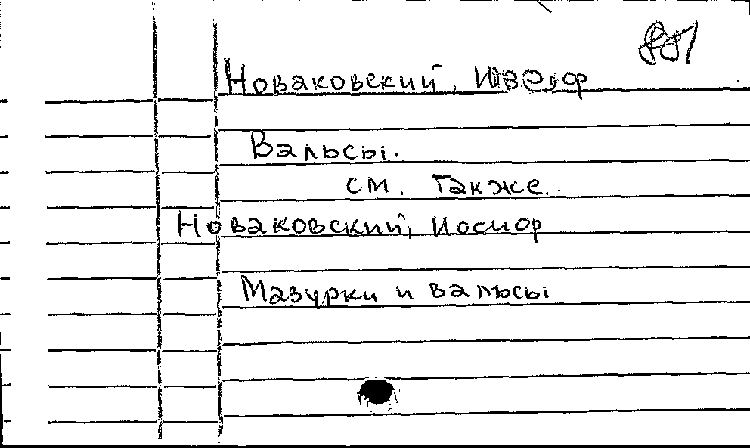 Новаковский,
Вальсы.
см. также
Новаковский, Иосиф
Мазурки и вальсы